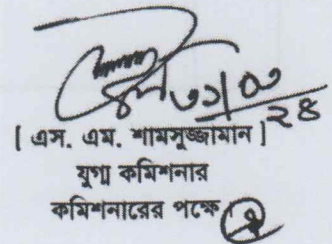 ৩১/০৩
২৪
[ এস. এম. শামসুজ্জামান ]
যুগ্ম কমিশনার
কমিশনারের পক্ষে